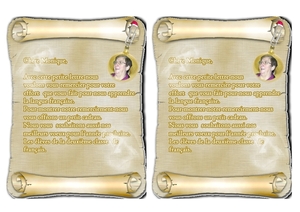 Chère Monique,
Avec cette petite lettre nous
voulons vous remercier pour votre
effort que vous fait pour nous apprendre
la langue française.
Pour montrer notre remerciement nous
vous offrons un petit cadeau.
Nous vous souhaitons aussi nos
meilleurs voeux pour l'année prochaine.
Les élèves de la deuxième classe de
français.
Chère Monique,
Avec cette petite lettre nous
voulons vous remercier pour votre
effort que vous fait pour nous apprendre
la langue française.
Pour montrer notre remerciement nous
vous offrons un petit cadeau.
Nous vous souhaitons aussi nos
meilleurs voeux pour l'année prochaine.
Les élèves de la deuxième classe de
français.